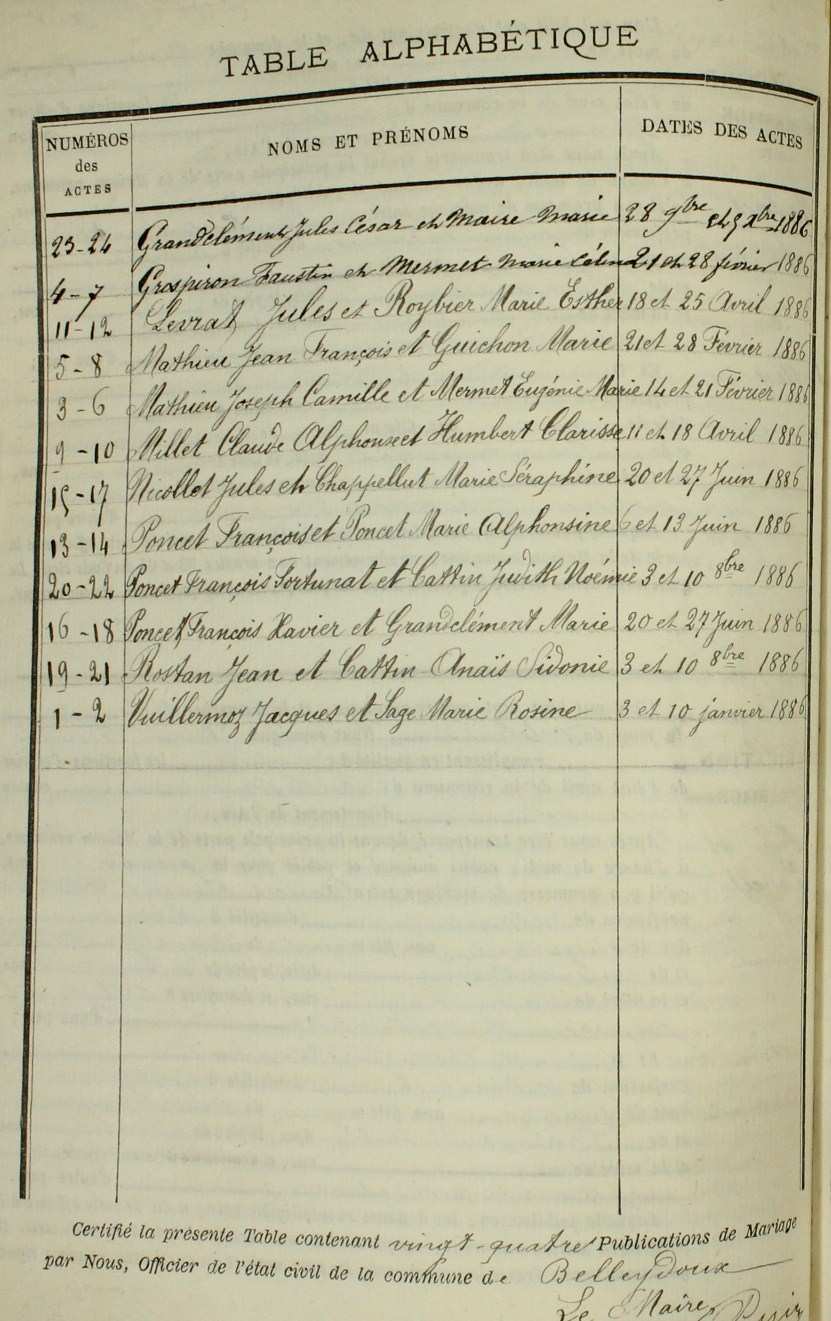 TABLE ALPHABÉTIQUE
NUMÉROS des ACTES NOMS ET PRÉNOMS DATES DES ACTES
23-24 Grandclément Jules César et Maire Marie 28 9bre et 5 Xbre 1886
4-7 Grospiron Faustin et Mermet Marie Célina 21 et 28 février 1886
11-12 Levrat Jules et Roybier Marie Esther 18 et 25 Avril 1886
5-8 Mathieu Jean François et Guichon Marie 21 et 28 Février 1886
3-6 Mathieu Joseph Camille et Mermet Eugénie Marie 14 et 21 Février 1886
9-10 Millet Claude Alphonse et Humbert Clarisse 11 et 18 Avril 1886
15-17 Nicollet Jules et Chappellut Marie Séraphine 20 et 27 Juin 1886
13-14 Poncet François et Poncet Marie Alphonsine 6 et 13 Juin 1886
20-22 Poncet François Fortunat et Cattin Judith Noémie 3 et 10 8bre 1886
16-18 Poncet François Xavier et Grandclément Marie 20 et 27 Juin 1886
19-21 Rostan Jean et Cattin Anaïs Sidonie 3 et 10 8bre 1886
1-2 Vuillermoz Jacques et Sage Marie Rosine 3 et 10 janvier 1886
Certifié la présente Table contenant vingt-quatre Publications de Mariage
par Nous, Officier de l'état civil de la commune de Belleydoux
Le Maire